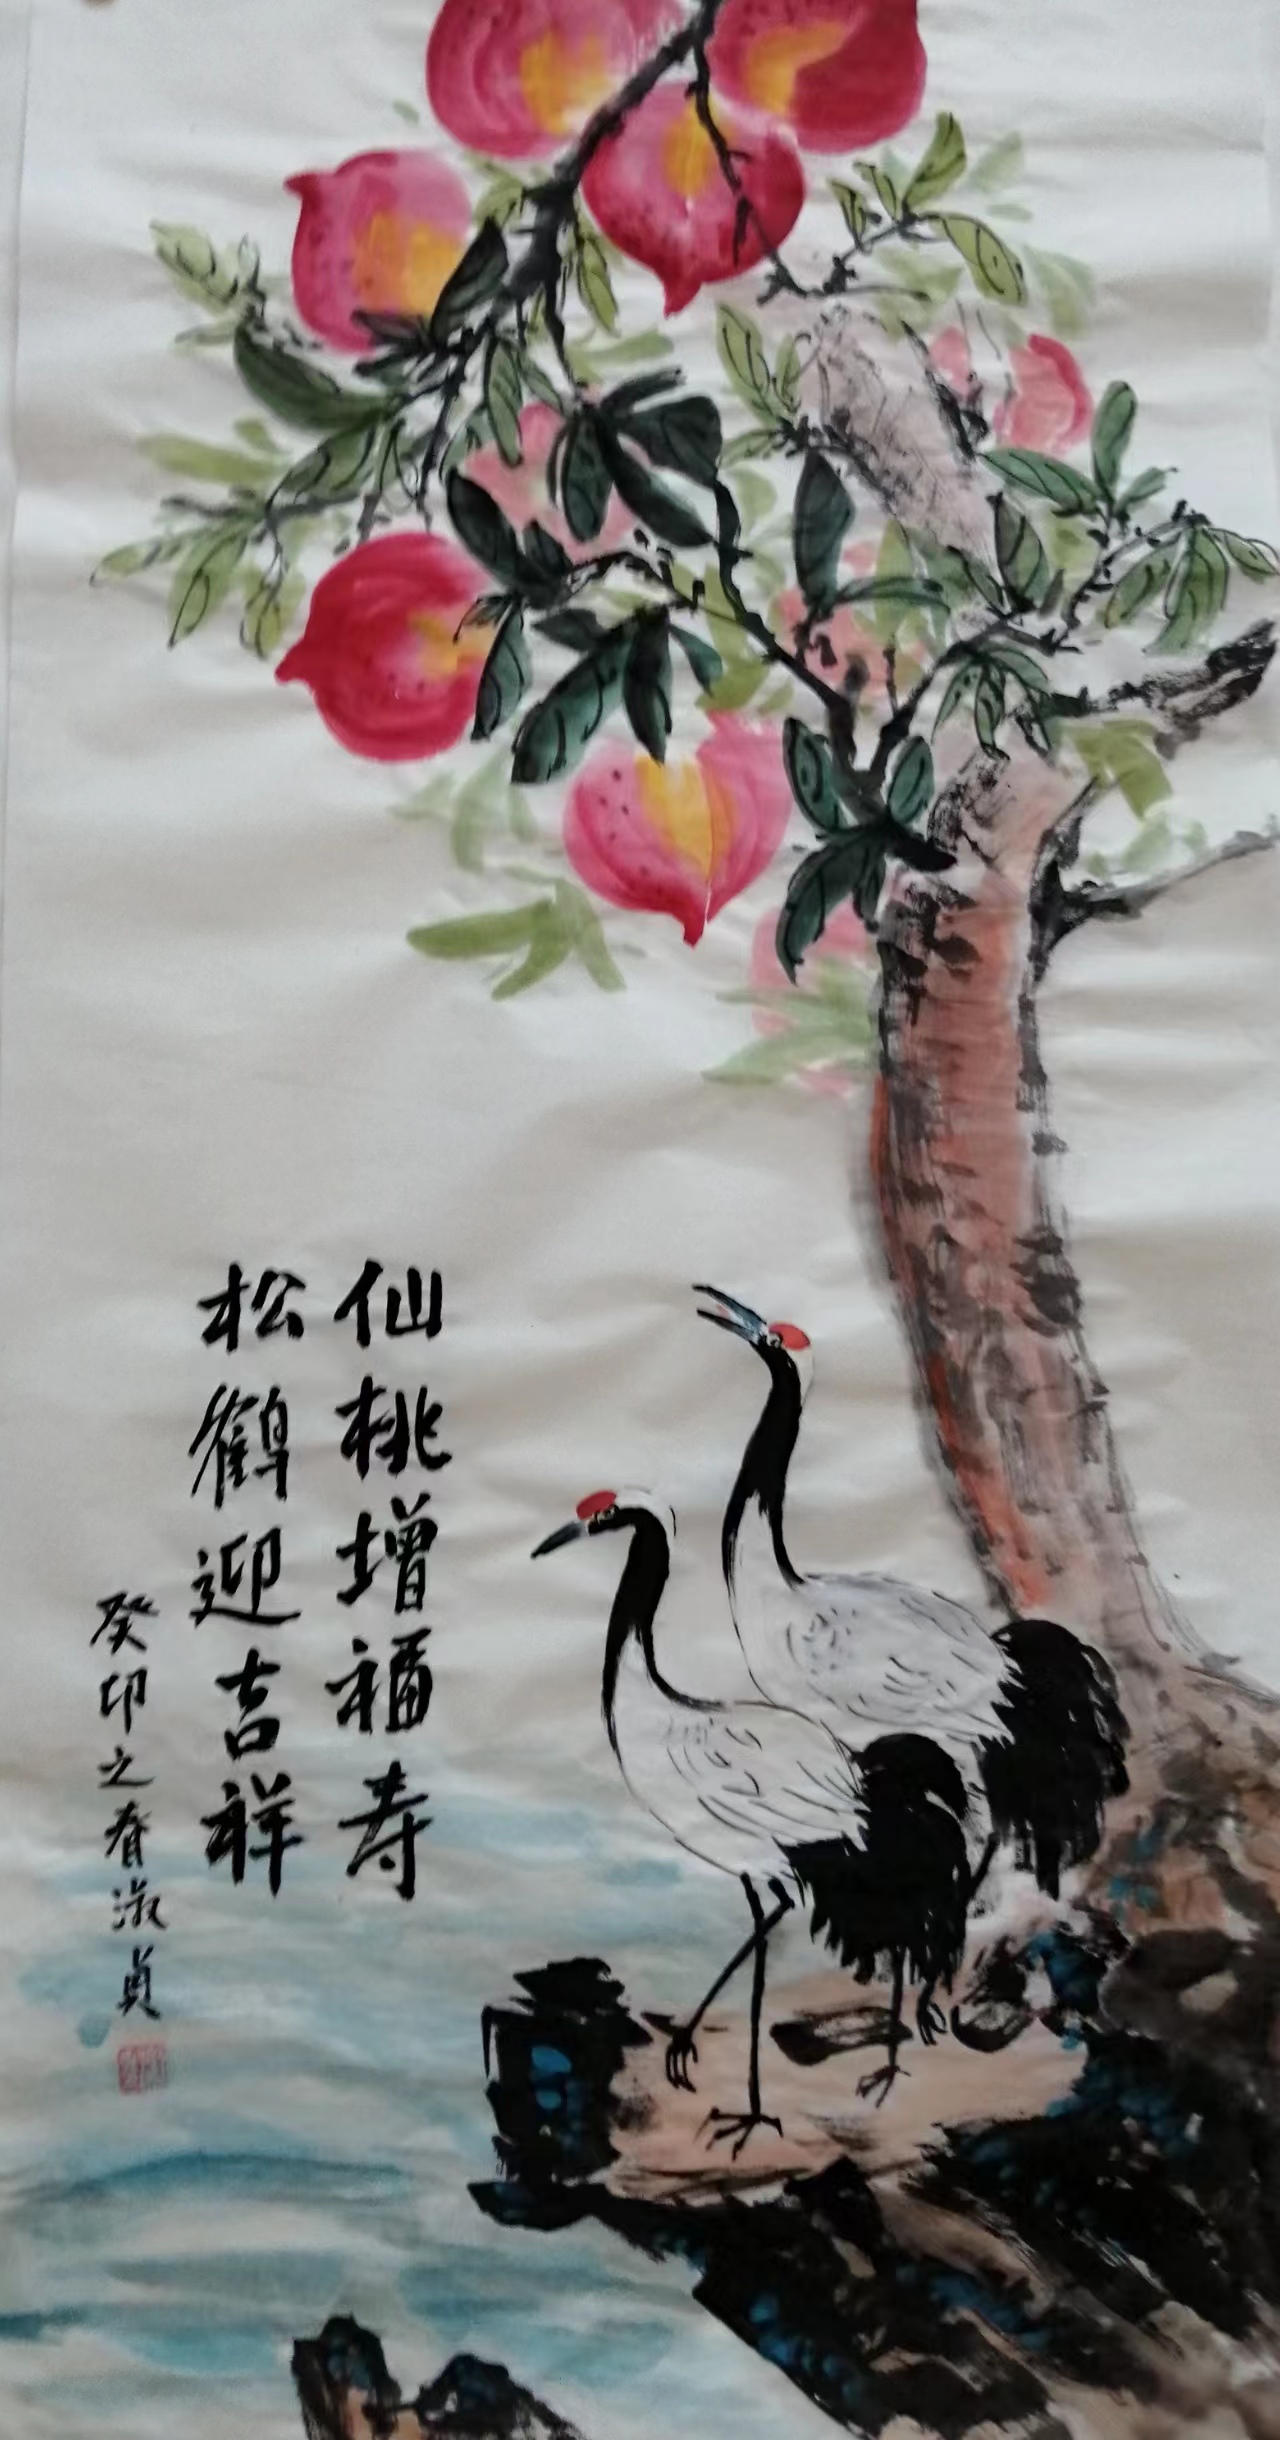 仙桃增福寿
松鹤迎吉祥
癸卯之春淑贞